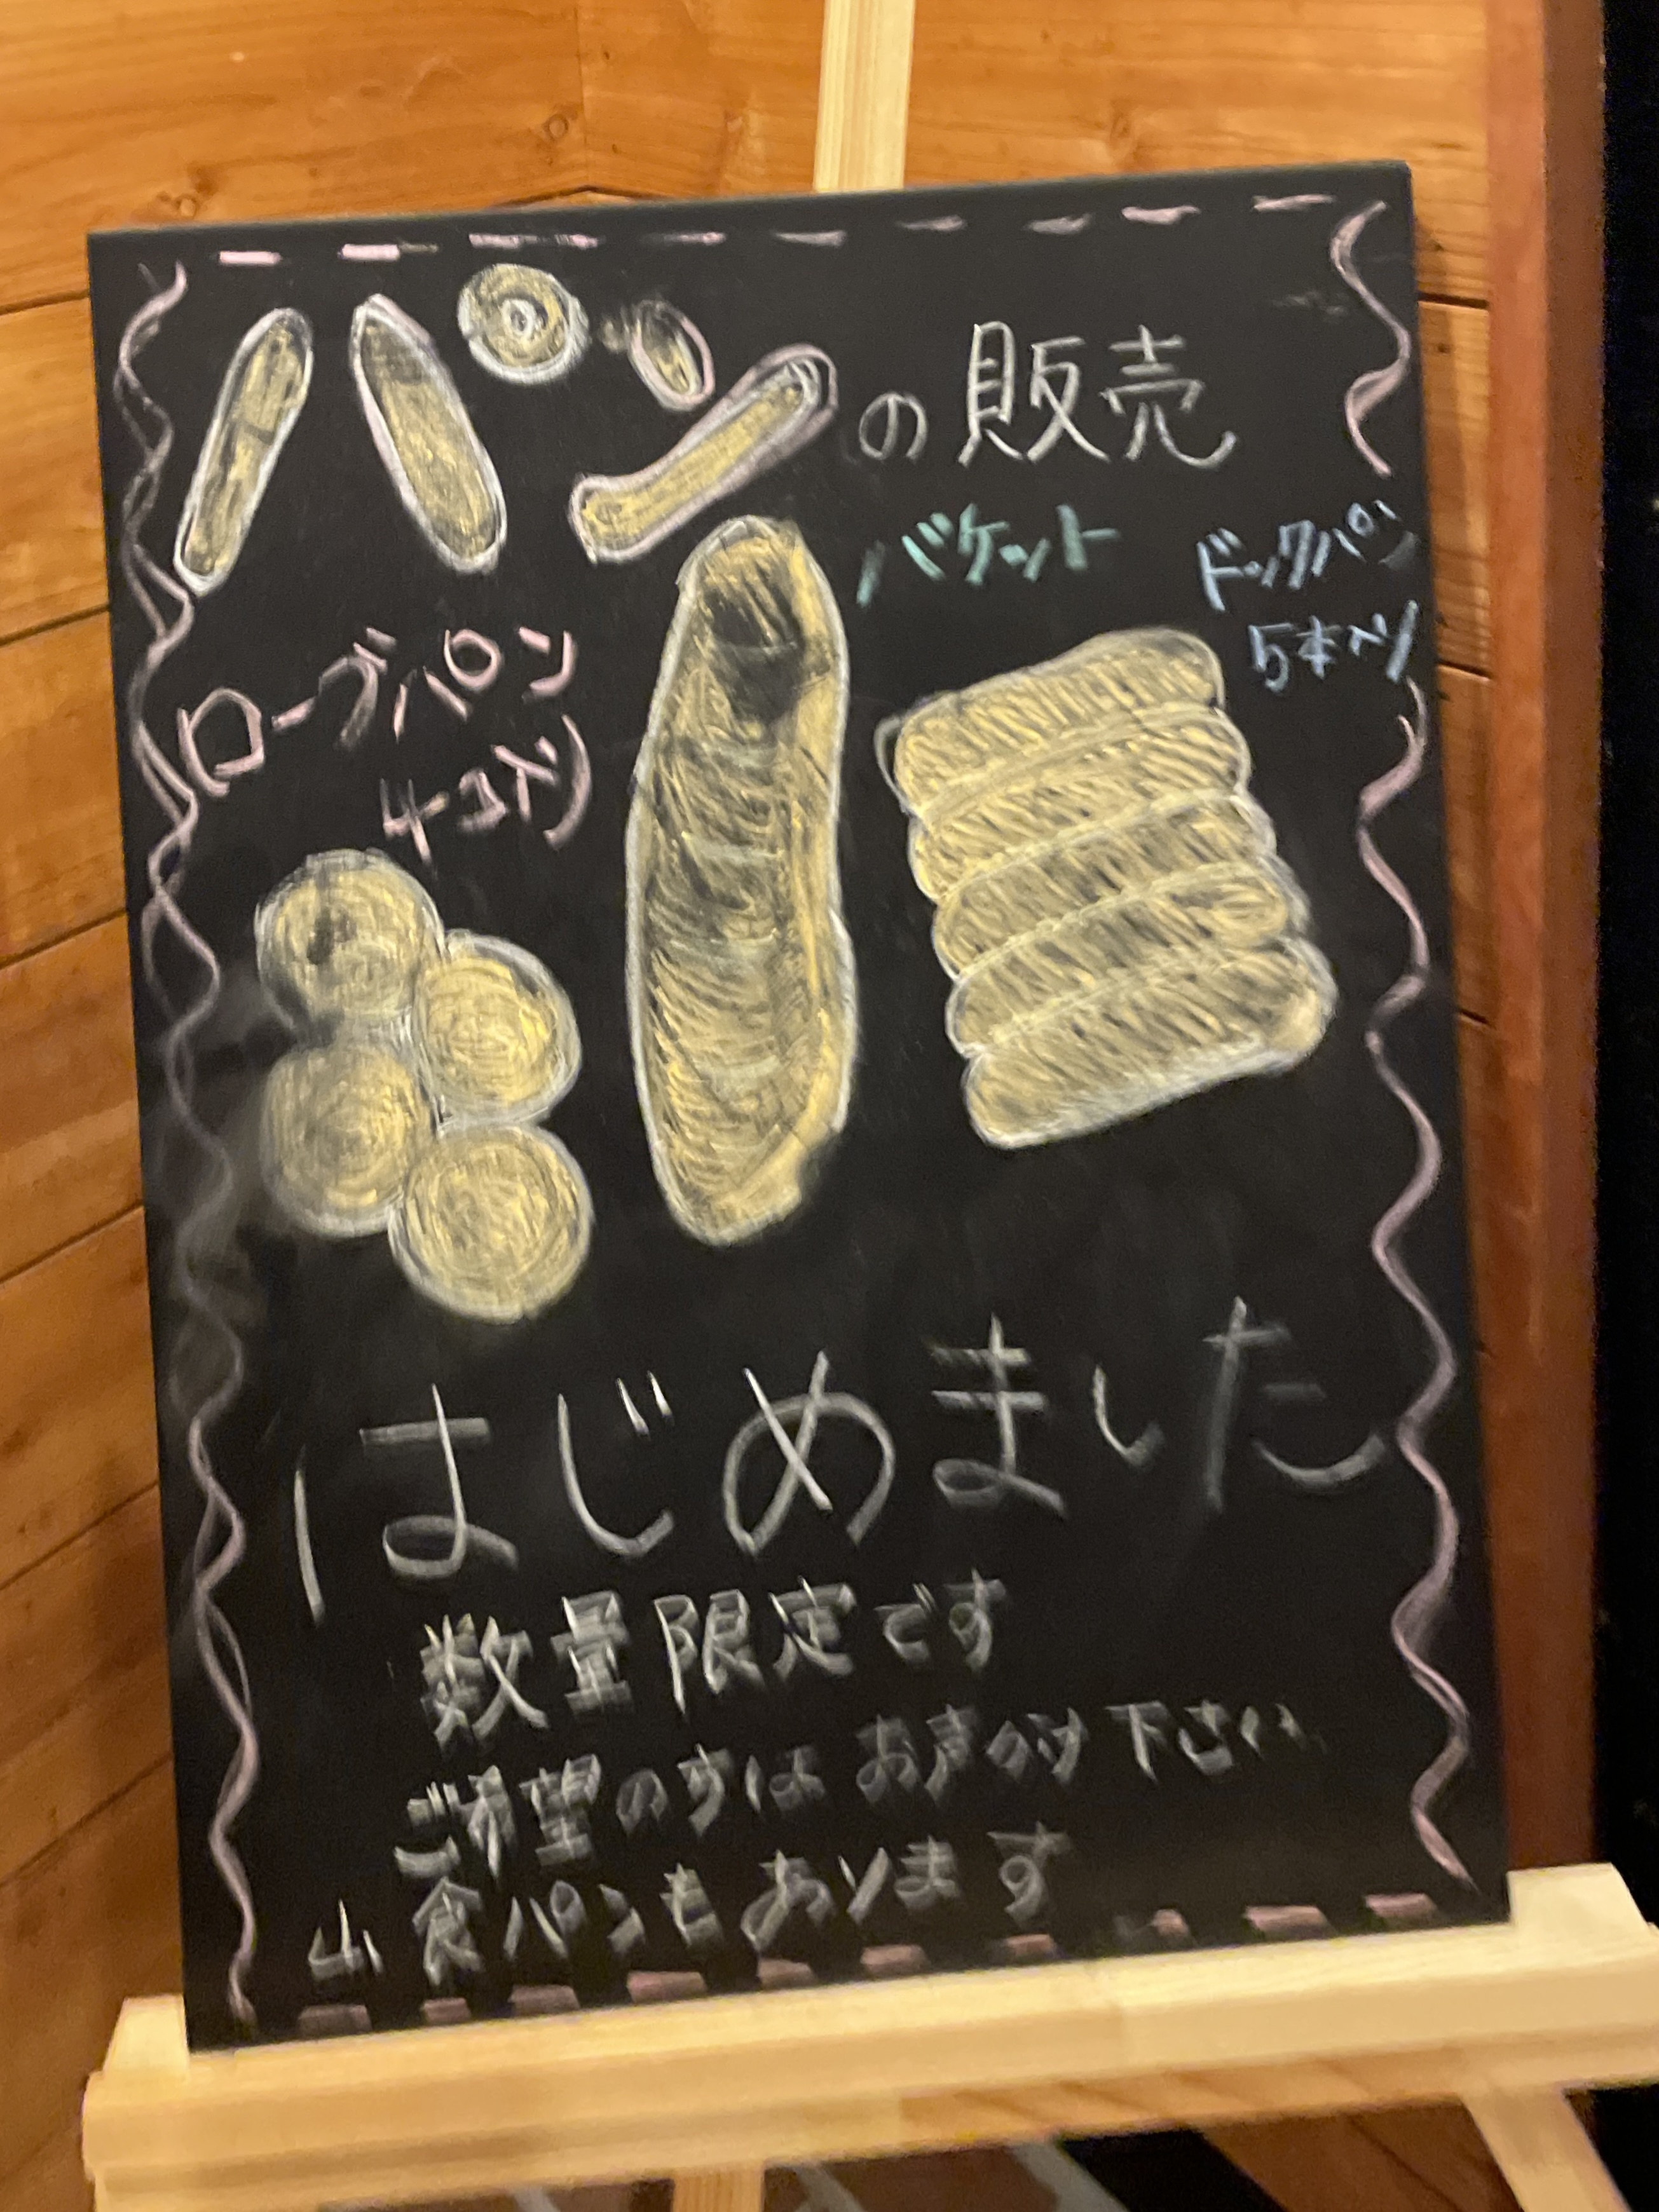 パンの販売
バケット
ドックパン
5本入り
ローブパン
4コ入り
はじめました
数量限定です
ご希望の方はお声かけ下さい
山食パンもあります